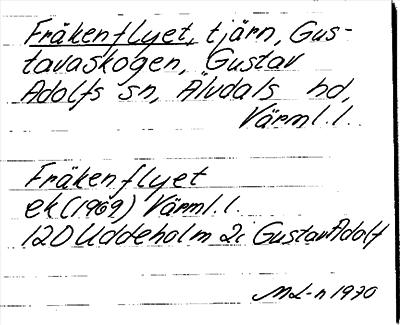 Fräkenflyet, tjärn, Gus-
tavaskogen, Gustav
Adolfs sn, Älvdals hd,
Värml.l.
Fräkenflyet
ek (1969) Värml.l.
12D Uddeholm 2i Gustav Adolf
ML-n 1970